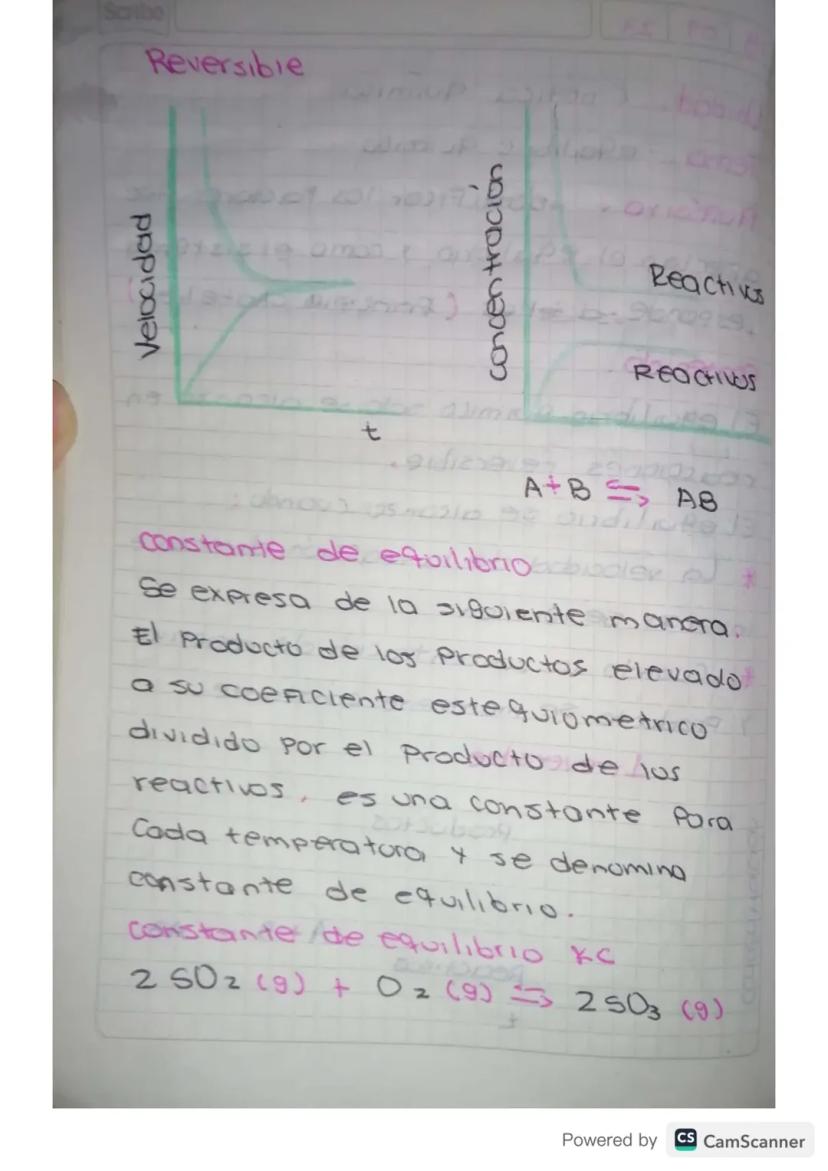 Scribe
Reversible
Velocidad
t
concentración
Reactivos
Reactivos
A+B ⇆ AB
constante de equilibrio
Se expresa de la siguiente manera.
El Producto de los Productos elevado
a su coeficiente estequiometrico
dividido por el Producto de los
reactivos, es una constante Para
Cada temperatura y se denomina
constante de equilibrio.
constante de equilibrio KC
2 SO2 (g) + O2 (g) ⇆ 2 SO3 (g)
Powered by CS CamScanner